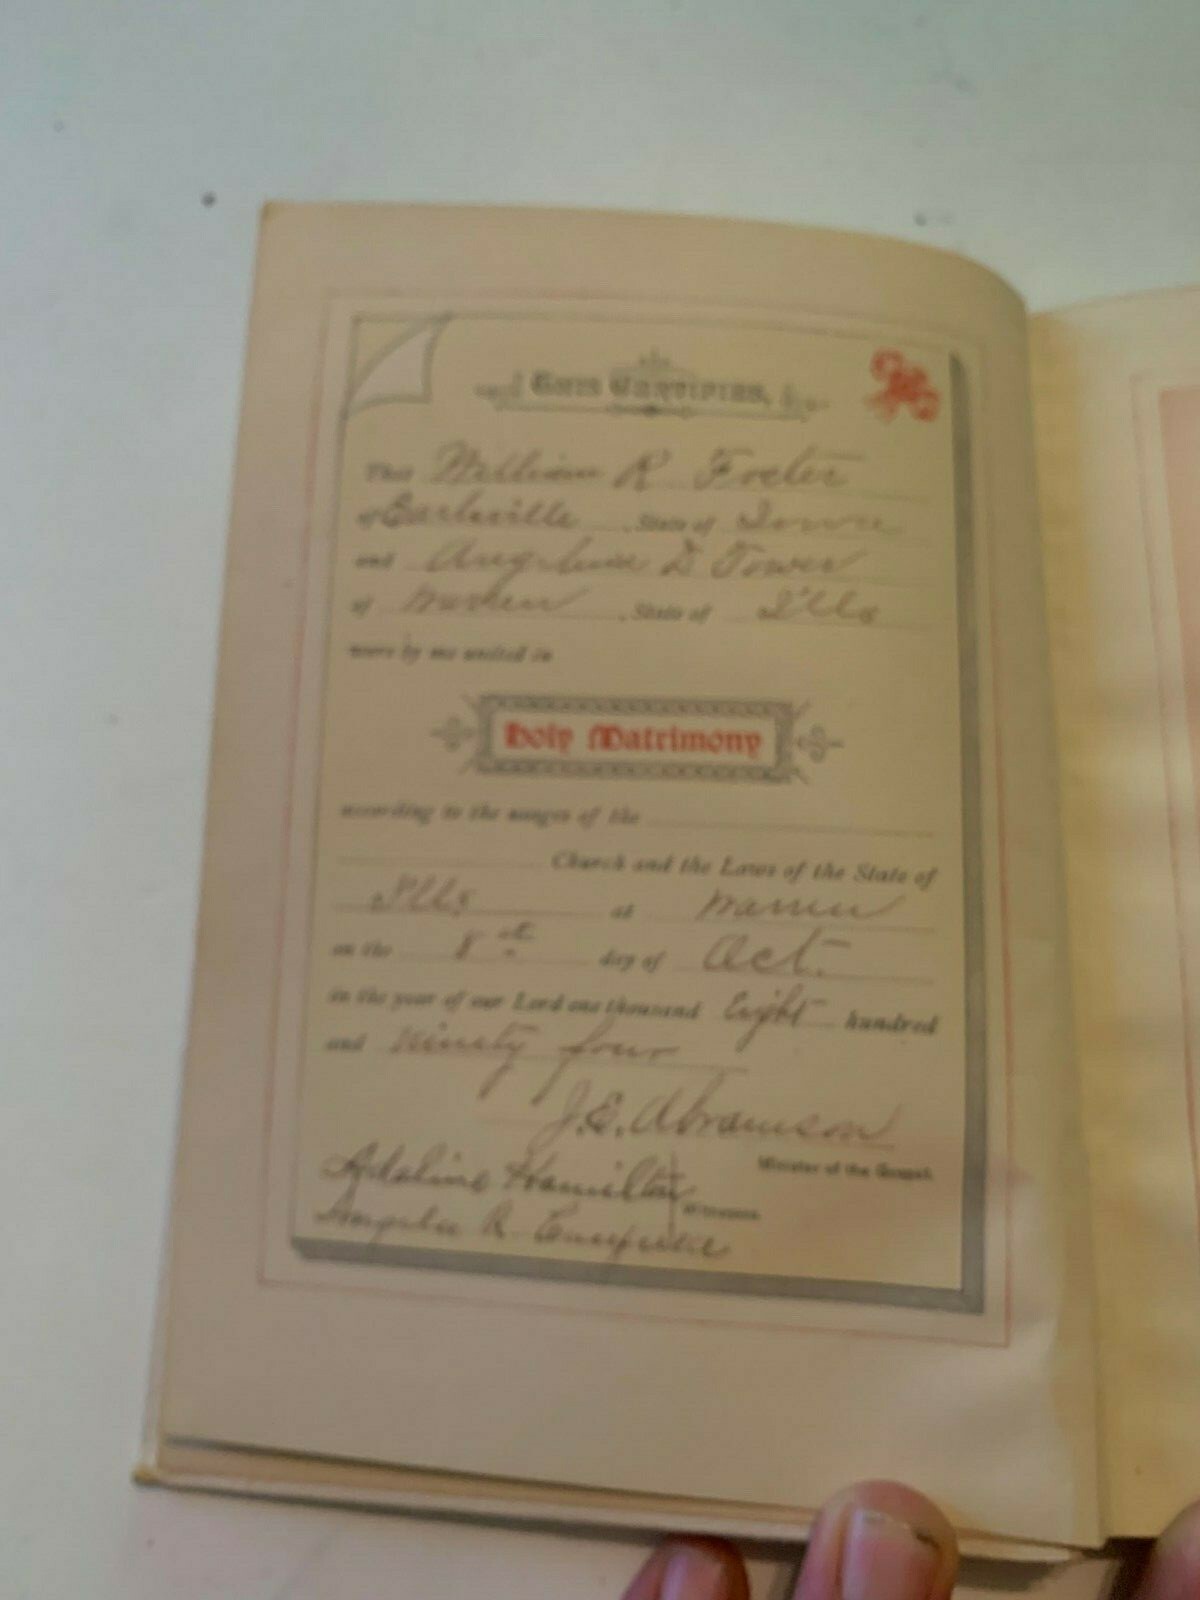 This Certifies,
That William R Foster
of Earlville State of Iowa
and Angeline D Tower
of Warren, State of Ills
were by me united in
Holy Matrimony
according to the usages of the
Church and the Laws of the State of
Ills at Warren
on the 8th day of Oct.
in the year of our Lord one thousand Eight hundred
and ninety four
J. E. Abramson
Minister of the Gospel.
Adaline Hamilton
Witnesses.
R.